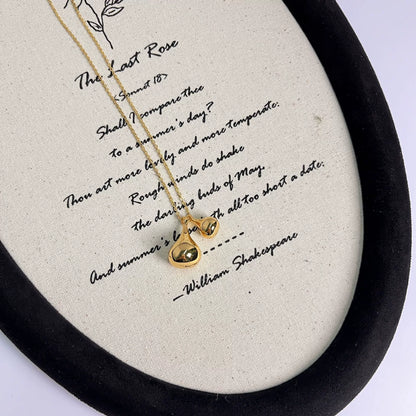 The Last Rose
<Sonnet 18>
Shall I compare thee
to a summer's day?
Thou art more lovely and more temperate:
Rough winds do shake
the darling buds of May,
And summer's lease hath all too short a date:
—William Shakespeare